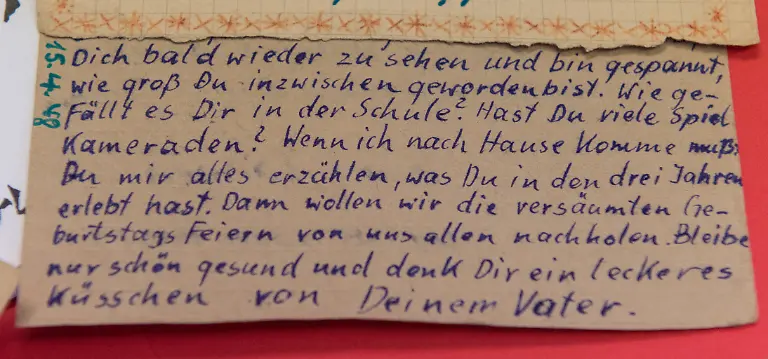 15.4.48
Dich bald wieder zu sehen und bin gespannt,
wie groß Du inzwischen geworden bist. Wie ge-
fällt es Dir in der Schule? Hast Du viele Spiel
Kameraden? Wenn ich nach Hause komme mußt
Du mir alles erzählen, was Du in den drei Jahren
erlebt hast. Dann wollen wir die versäumten Ge-
burtstags Feiern von uns allen nachholen. Bleibe
nur schön gesund und denk Dir ein leckeres
Küsschen von Deinem Vater.